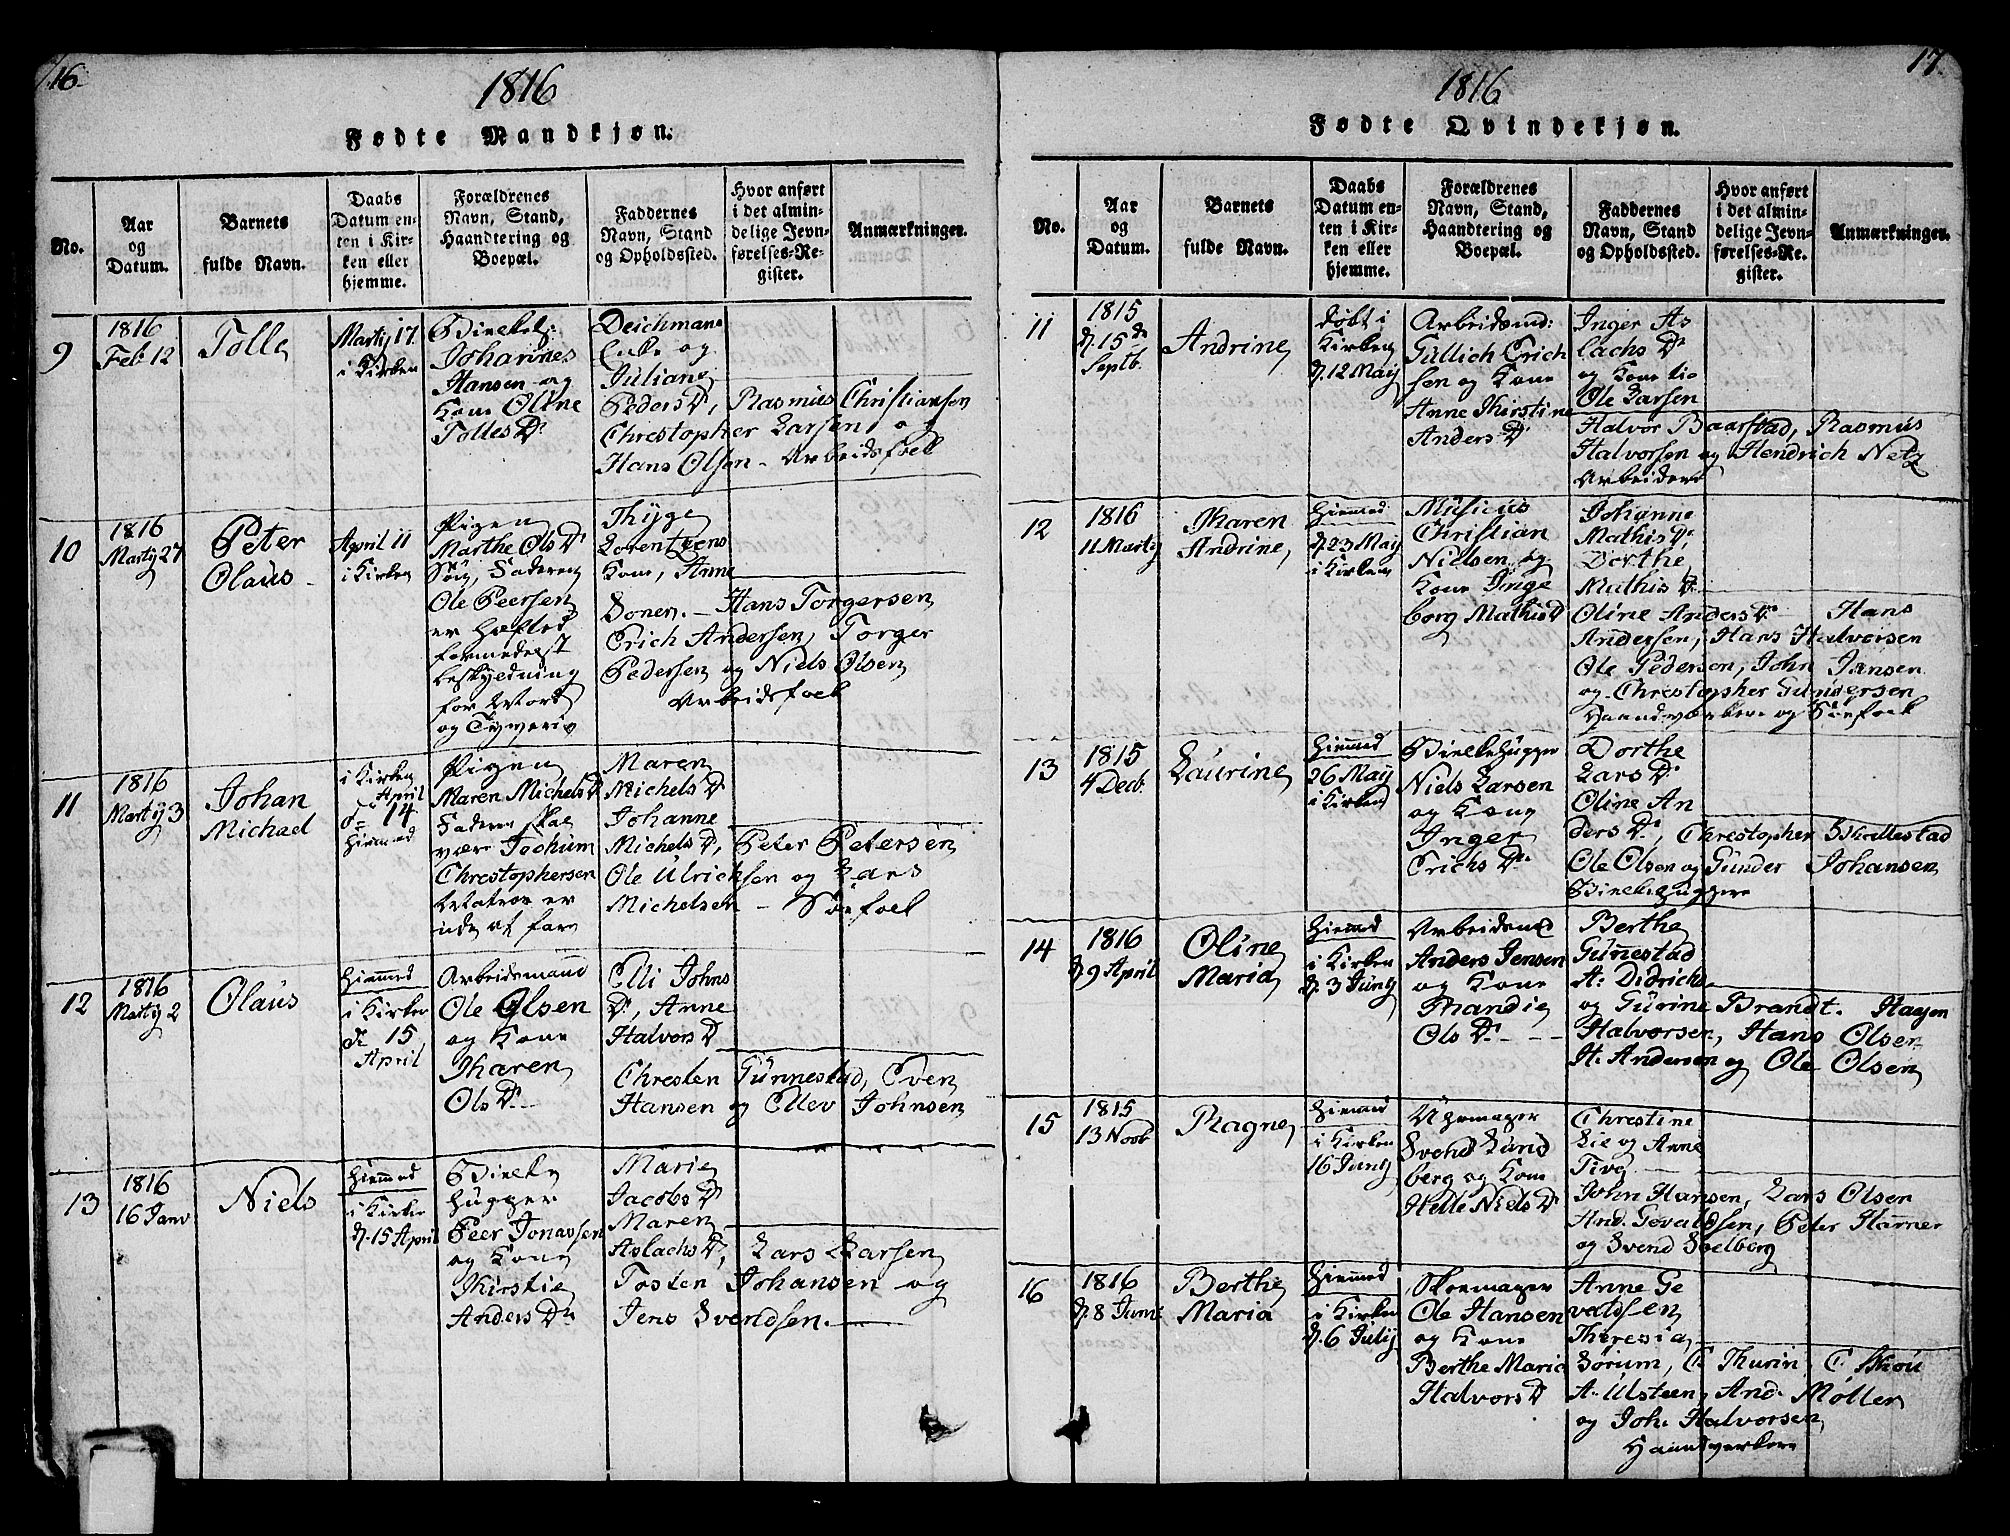 16.
1816
Fødte Mandkjøn.
No.
Aar
og
Datum.
Barnets
fulde Navn.
Daabs
Datum en-
ten i Kir-
ken eller
hjemme.
Forældrenes
Navn, Stand,
Haandtering og
Boepæl.
Faddernes
Navn, Stand
og Opholdssted.
Hvor anført
i det almin-
delige Jevn-
førelses-Re-
gister.
Anmærkninger.
9
1816
Feb 12
Tolle
Martij 17
i Kirken
Johannes
Hansen og
Kone Oline
Tolles Dr
Deichmans
Enke og
Juliane
Peders Dr, Rasmus Christiansen
Chrestopher Larsen og
Hans Olsen - Arbeidsfolk
10
1816
Martij 27
Peter
Olaus
April 11
i Kirken
Pigen
Marthe Ols Dr
Søn, Faderen
Ole Peersen
er hæftet
formedelst
beskyldning
for Mord
og Tyverie
Thyge
Lorentzens
Kone, Anne
Doner. - Hans Torgersen
Erich Andersen, Torger
Pedersen og Niels Olsen
Arbeidsfolk
11
1816
Martij 3
Johan
Michael
i Kirken
April
d 14
Hiemmed
Pigen
Maren Michels Dr
Faderen skal
være Jochum
Chrestophersen
Matros er
ude at fare
Maren
Michels Dr
Johanne
Michels Dr, Peter Petersen
Ole Ulrichsen og Lars
Michelsen - Søefolk
12
1816
Martij 2
Olaus
Hiemmed
i Kirken
d 15
April
Arbeidsmand
Ole Olsen
og Kone
Karen
Ols Dr
Elli Johns
Dr, Anne
Halvors Dr
Chresten Gunnestad, Even
Hansen og Ellev Johnsen
13
1816
16 Janv
Niels
Hiemmed
i Kirken
d. 15 April
hugger
Peer Jonassen
og Kone
Kirstie
Anders Dr
Marie
Jacobs Dr
Maren
Aslachs Dr, Lars Larsen
Tosten Johansen og
Jens Svendsen.
17.
1816
Fødte Qvindekjøn.
No.
Aar
og
Datum.
Barnets
fulde Navn.
Daabs
Datum en-
ten i Kir-
ken eller
hjemme.
Forældrenes
Navn, Stand,
Haandtering og
Boepæl.
Faddernes
Navn, Stand
og Opholdssted.
Hvor anført
i det almin-
delige Jevn-
førelses-Re-
gister.
Anmærkninger.
11
1815
d. 15de
Septb.
Andrine
døbt i
Kirken
d. 12 May
Arbeidsmd:
Gullich Erich
sen og Kone
Anne Kirstine
Anders Dr
Inger As
lachs Dr
og Kone
Ole Larsen
Halvor Baarstad, Rasmus
Halvorsen og Hendrich Netz
Arbeidere
12
1816
11 Martij
Karen
Andrine
Hiemmed
d. 23 May
i Kirken
Musicus
Christian
Nielsen og
Kone Inge
borg Mathis Dr
Johanne
Mathis Dr
Dorthe
Mathis Dr
Oline Anders Dr Hans
Andersen, Hans Halvorsen
Ole Pedersen, John Jansen
og Chrestopher Gundersen
Haandværkere og Søefolk
13
1815
4 Decb.
Laurine
Hiemmed
26 May
i Kirken
Niels Larsen
og Kone
Inger
Erichs Dr
Dorthe
Lars Dr
Oline An
ders Dr, Chrestopher Skallestad
Ole Olsen og Gunder Johansen
14
1816
d. 9 April
Oline
Maria
Hiemmed
i Kirken
d. 3 Junij
Arbeidsmd
Anders Jensen
og Kone
Randie
Ols Dr
Berthe
Gunnestad
A. Didrichs
og Gurine Brandt. Haagen
Halvorsen, Hans Olsen
H. Andersen og Ole Olsen
15
1815
13 Novb
Ragne
Hiemmed
i Kirken
16 Junij
Uhrmager
Svend Lund
berg og Kone
Helle Niels Dr
Chrestine
Lie og Anne
John Hansen, Lars Olsen
And. Gevaldsen, Peter Hamer
og Svend Soelberg
16
1816
d. 8 Junii
Berthe
Maria
Hiemmed
i Kirken
d. 6 Julij
Skoemager
Ole Hansen
og Kone
Berthe Maria
Halvors Dr
Anne Ge
valdsen
Theresia
Sørum, C Thurin C. Skou
A. Ulsteen, And. Møller
og Joh. Halvorsen
Haandværkere